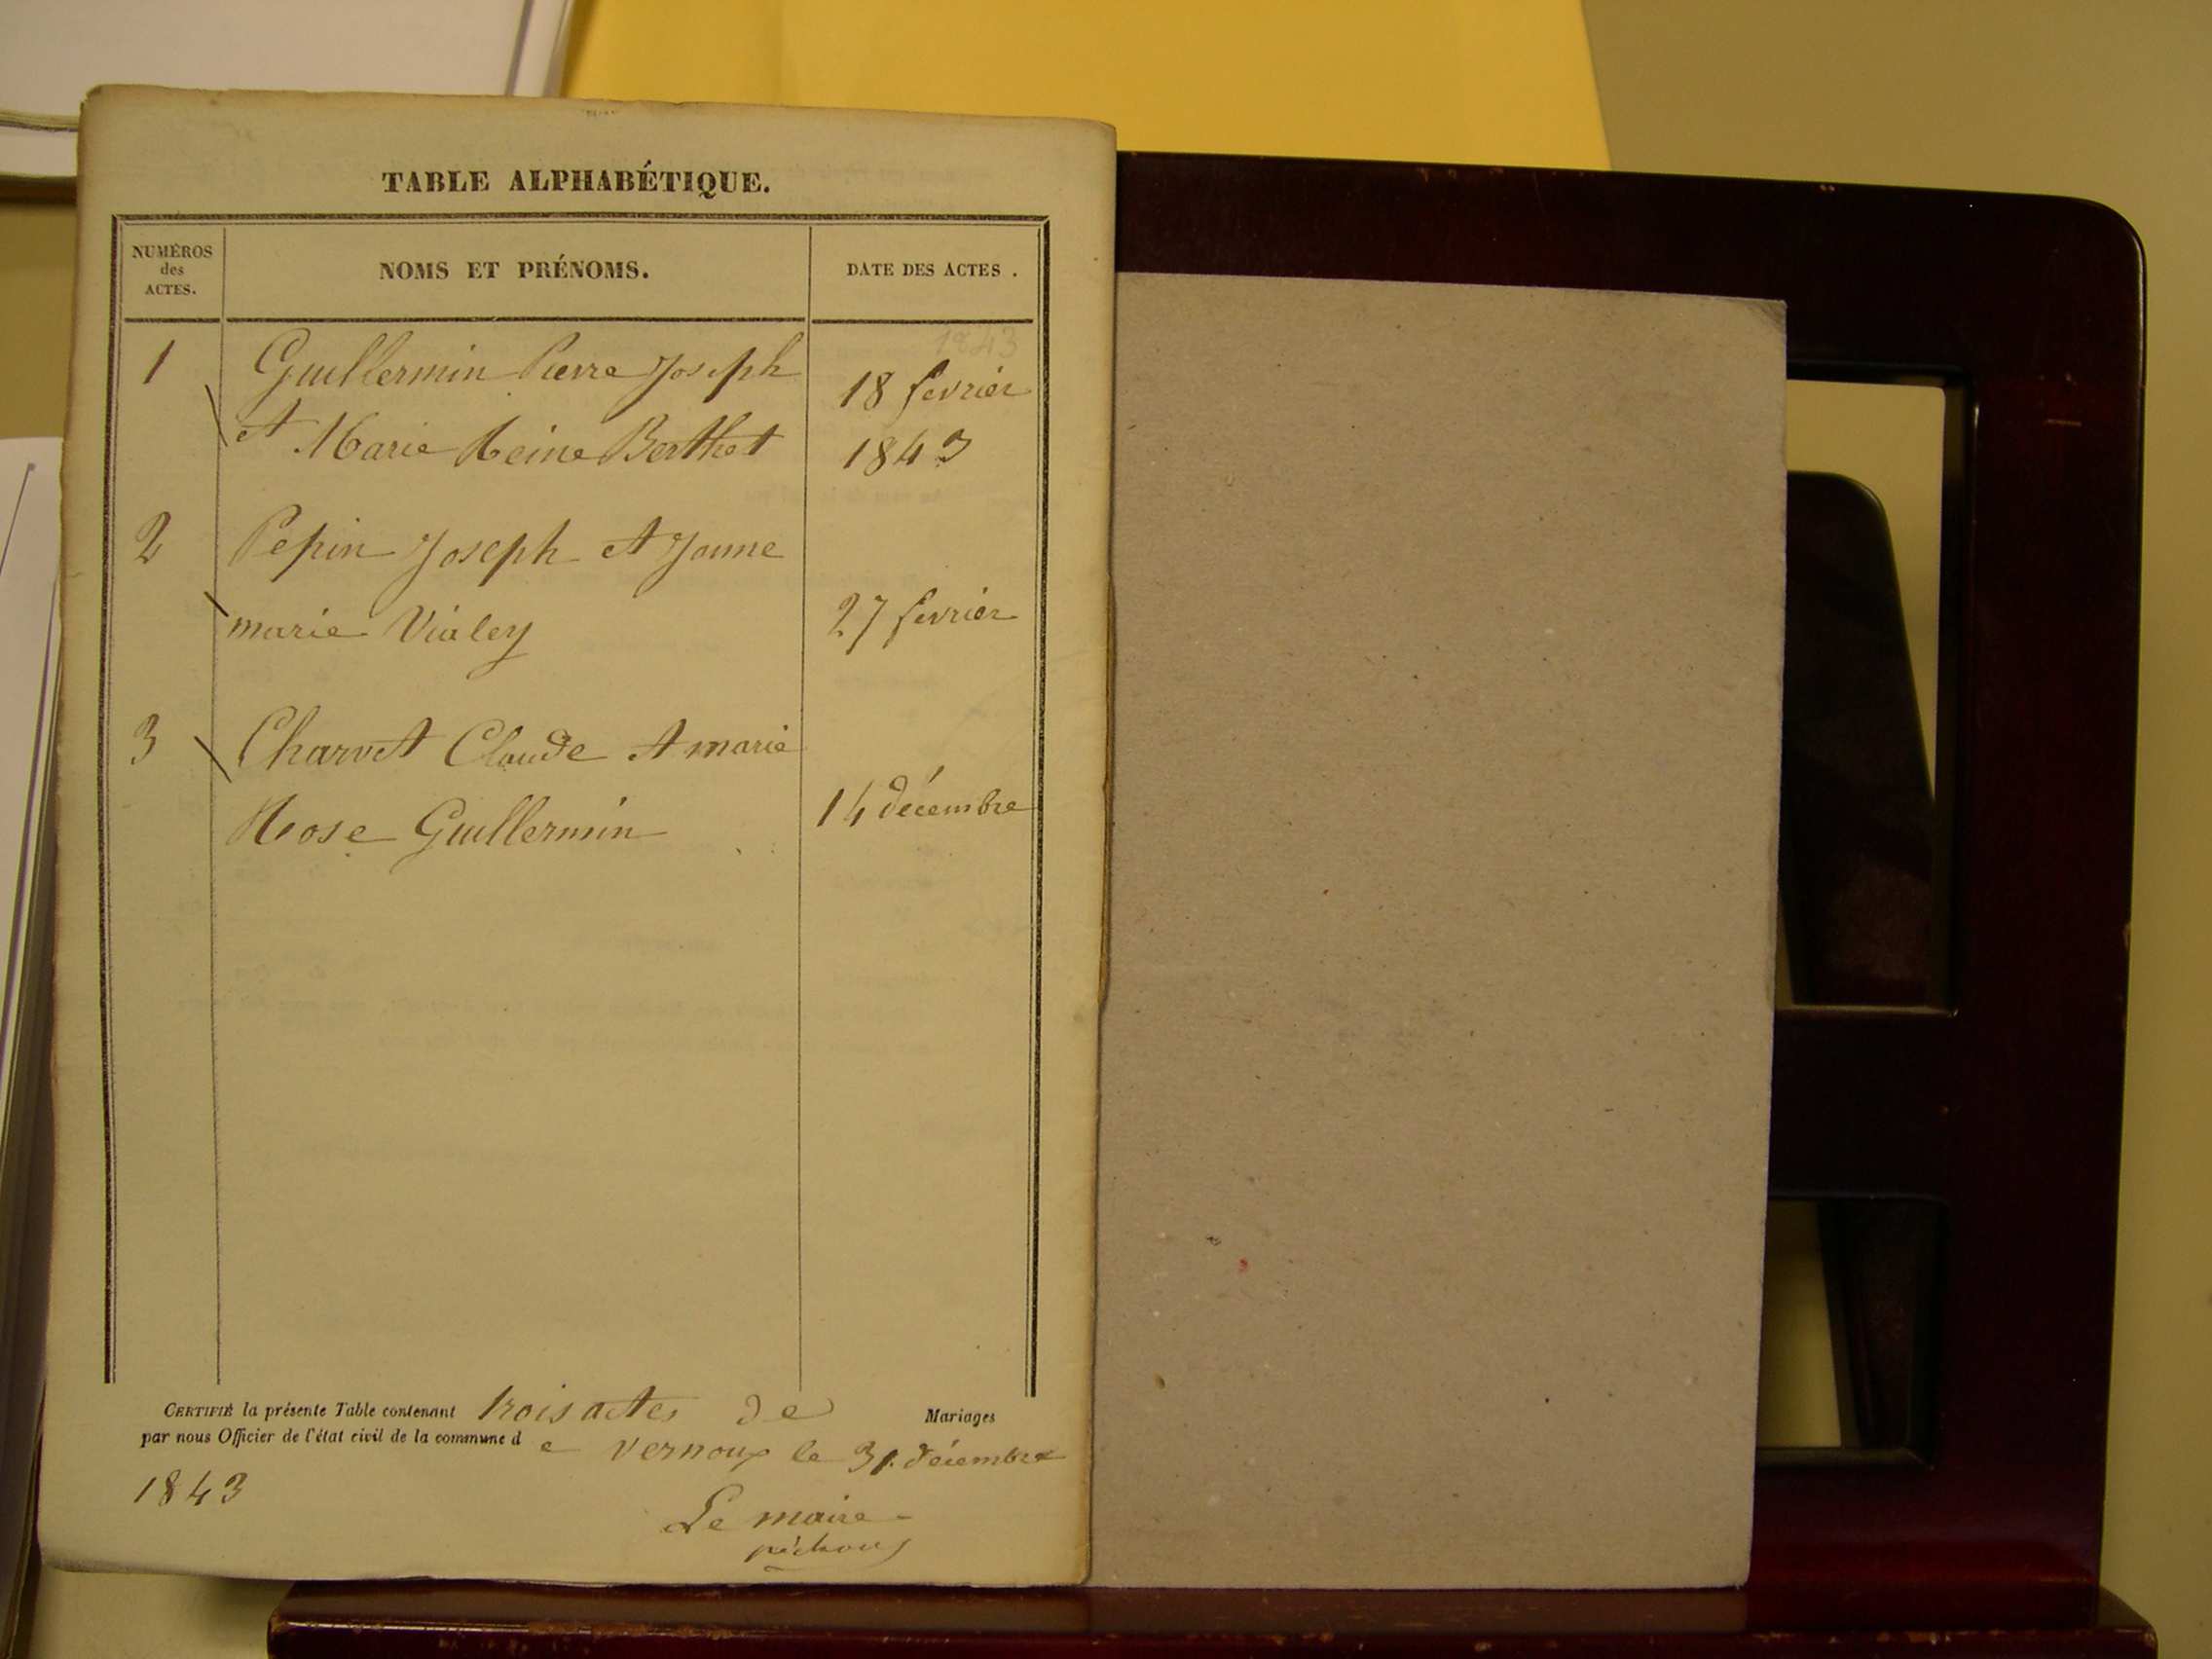 TABLE ALPHABÉTIQUE.
NUMÉROS
des
ACTES.
NOMS ET PRÉNOMS.
DATE DES ACTES .
1843
1 Guillermin Pierre Joseph 18 fevrier
et Marie Reine Berthet 1843
2 Pepin Joseph et Janne
marie Vialey 27 fevrier
3 Charvet Claude et marie
Rose Guillermin 14 décembre
CERTIFIÉ la présente Table contenant trois actes de Mariages
par nous Officier de l'état civil de la commune d e vernoux le 31 décembre
1843
Le maire